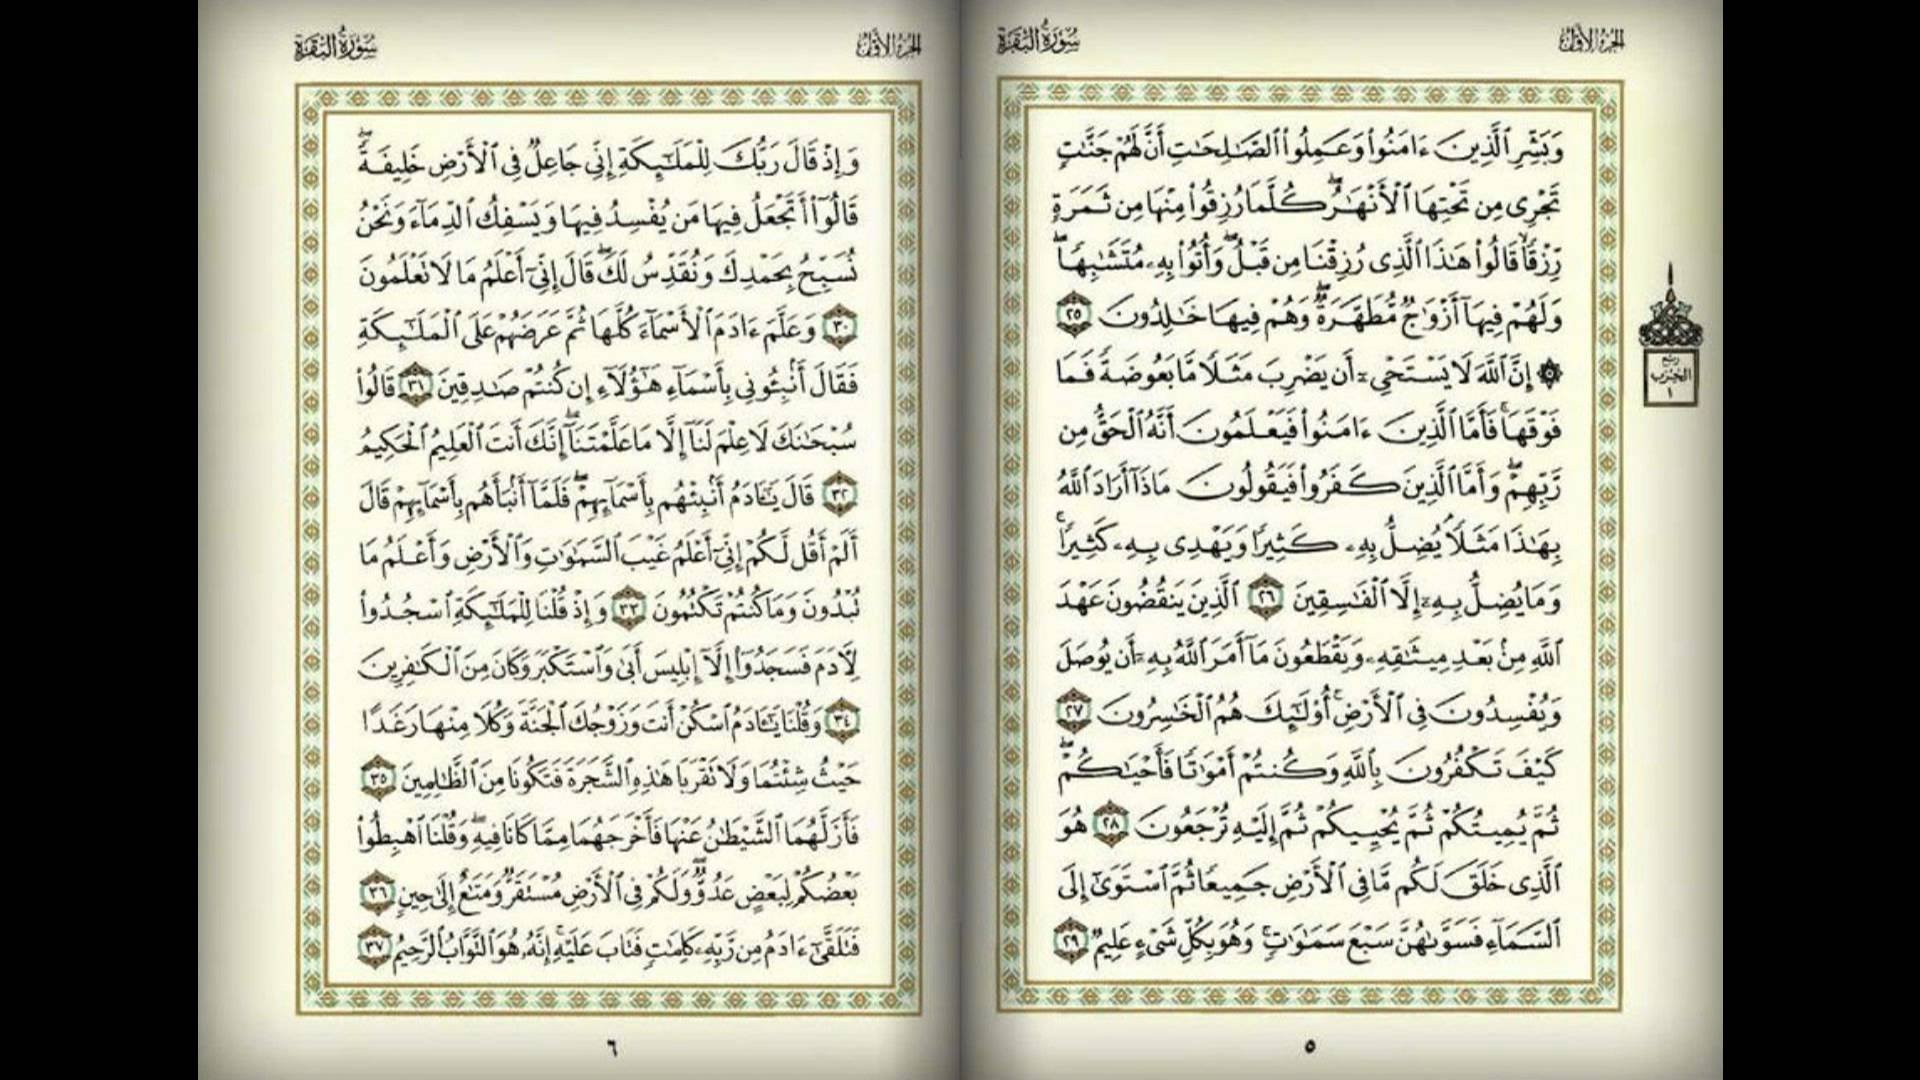 الجزء الأول
سورة البقرة
وَبَشِّرِ ٱلَّذِينَ ءَامَنُوا۟ وَعَمِلُوا۟ ٱلصَّـٰلِحَـٰتِ أَنَّ لَهُمْ جَنَّـٰتٍ
تَجْرِى مِن تَحْتِهَا ٱلْأَنْهَـٰرُ ۖ كُلَّمَا رُزِقُوا۟ مِنْهَا مِن ثَمَرَةٍ
رِّزْقًا ۙ قَالُوا۟ هَـٰذَا ٱلَّذِى رُزِقْنَا مِن قَبْلُ ۖ وَأُتُوا۟ بِهِۦ مُتَشَـٰبِهًا ۖ
وَلَهُمْ فِيهَآ أَزْوَٰجٌ مُّطَهَّرَةٌ ۖ وَهُمْ فِيهَا خَـٰلِدُونَ ٢٥
۞ إِنَّ ٱللَّهَ لَا يَسْتَحْىِۦٓ أَن يَضْرِبَ مَثَلًا مَّا بَعُوضَةً فَمَا
فَوْقَهَا ۚ فَأَمَّا ٱلَّذِينَ ءَامَنُوا۟ فَيَعْلَمُونَ أَنَّهُ ٱلْحَقُّ مِن
رَّبِّهِمْ ۖ وَأَمَّا ٱلَّذِينَ كَفَرُوا۟ فَيَقُولُونَ مَاذَآ أَرَادَ ٱللَّهُ
بِهَـٰذَا مَثَلًا ۘ يُضِلُّ بِهِۦ كَثِيرًا وَيَهْدِى بِهِۦ كَثِيرًا ۚ
وَمَا يُضِلُّ بِهِۦٓ إِلَّا ٱلْفَـٰسِقِينَ ٢٦ ٱلَّذِينَ يَنقُضُونَ عَهْدَ
ٱللَّهِ مِنۢ بَعْدِ مِيثَـٰقِهِۦ وَيَقْطَعُونَ مَآ أَمَرَ ٱللَّهُ بِهِۦٓ أَن يُوصَلَ
وَيُفْسِدُونَ فِى ٱلْأَرْضِ ۚ أُو۟لَـٰٓئِكَ هُمُ ٱلْخَـٰسِرُونَ ٢٧
كَيْفَ تَكْفُرُونَ بِٱللَّهِ وَكُنتُمْ أَمْوَٰتًا فَأَحْيَـٰكُمْ ۖ
ثُمَّ يُمِيتُكُمْ ثُمَّ يُحْيِيكُمْ ثُمَّ إِلَيْهِ تُرْجَعُونَ ٢٨ هُوَ
ٱلَّذِى خَلَقَ لَكُم مَّا فِى ٱلْأَرْضِ جَمِيعًا ثُمَّ ٱسْتَوَىٰٓ إِلَى
ٱلسَّمَآءِ فَسَوَّىٰهُنَّ سَبْعَ سَمَـٰوَٰتٍ ۚ وَهُوَ بِكُلِّ شَىْءٍ عَلِيمٌ ٢٩
ربع
الحزب
١
٥
الجزء الأول
سورة البقرة
وَإِذْ قَالَ رَبُّكَ لِلْمَلَـٰٓئِكَةِ إِنِّى جَاعِلٌ فِى ٱلْأَرْضِ خَلِيفَةً ۖ
قَالُوٓا۟ أَتَجْعَلُ فِيهَا مَن يُفْسِدُ فِيهَا وَيَسْفِكُ ٱلدِّمَآءَ وَنَحْنُ
نُسَبِّحُ بِحَمْدِكَ وَنُقَدِّسُ لَكَ ۖ قَالَ إِنِّىٓ أَعْلَمُ مَا لَا تَعْلَمُونَ
٣٠ وَعَلَّمَ ءَادَمَ ٱلْأَسْمَآءَ كُلَّهَا ثُمَّ عَرَضَهُمْ عَلَى ٱلْمَلَـٰٓئِكَةِ
فَقَالَ أَنۢبِـُٔونِى بِأَسْمَآءِ هَـٰٓؤُلَآءِ إِن كُنتُمْ صَـٰدِقِينَ ٣١ قَالُوا۟
سُبْحَـٰنَكَ لَا عِلْمَ لَنَآ إِلَّا مَا عَلَّمْتَنَآ ۖ إِنَّكَ أَنتَ ٱلْعَلِيمُ ٱلْحَكِيمُ
٣٢ قَالَ يَـٰٓـَٔادَمُ أَنۢبِئْهُم بِأَسْمَآئِهِمْ ۖ فَلَمَّآ أَنۢبَأَهُم بِأَسْمَآئِهِمْ قَالَ
أَلَمْ أَقُل لَّكُمْ إِنِّىٓ أَعْلَمُ غَيْبَ ٱلسَّمَـٰوَٰتِ وَٱلْأَرْضِ وَأَعْلَمُ مَا
تُبْدُونَ وَمَا كُنتُمْ تَكْتُمُونَ ٣٣ وَإِذْ قُلْنَا لِلْمَلَـٰٓئِكَةِ ٱسْجُدُوا۟
لِـَٔادَمَ فَسَجَدُوٓا۟ إِلَّآ إِبْلِيسَ أَبَىٰ وَٱسْتَكْبَرَ وَكَانَ مِنَ ٱلْكَـٰفِرِينَ
٣٤ وَقُلْنَا يَـٰٓـَٔادَمُ ٱسْكُنْ أَنتَ وَزَوْجُكَ ٱلْجَنَّةَ وَكُلَا مِنْهَا رَغَدًا
حَيْثُ شِئْتُمَا وَلَا تَقْرَبَا هَـٰذِهِ ٱلشَّجَرَةَ فَتَكُونَا مِنَ ٱلظَّـٰلِمِينَ ٣٥
فَأَزَلَّهُمَا ٱلشَّيْطَـٰنُ عَنْهَا فَأَخْرَجَهُمَا مِمَّا كَانَا فِيهِ ۖ وَقُلْنَا ٱهْبِطُوا۟
بَعْضُكُمْ لِبَعْضٍ عَدُوٌّ ۖ وَلَكُمْ فِى ٱلْأَرْضِ مُسْتَقَرٌّ وَمَتَـٰعٌ إِلَىٰ حِينٍ ٣٦
فَتَلَقَّىٰٓ ءَادَمُ مِن رَّبِّهِۦ كَلِمَـٰتٍ فَتَابَ عَلَيْهِ ۚ إِنَّهُۥ هُوَ ٱلتَّوَّابُ ٱلرَّحِيمُ ٣٧
٦